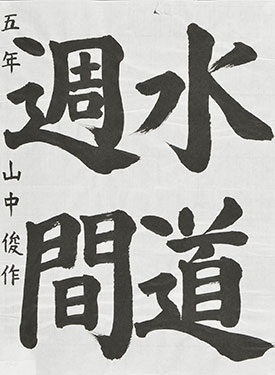 水道
週間
五年 山中俊作